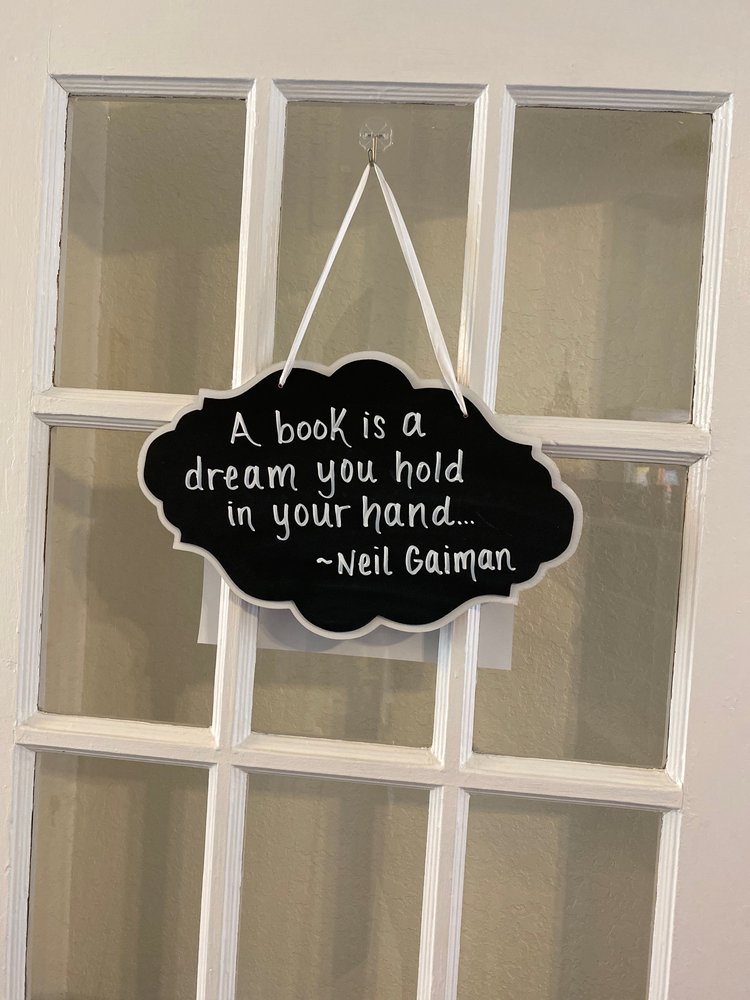 A book is a
dream you hold
in your hand...
~Neil Gaiman